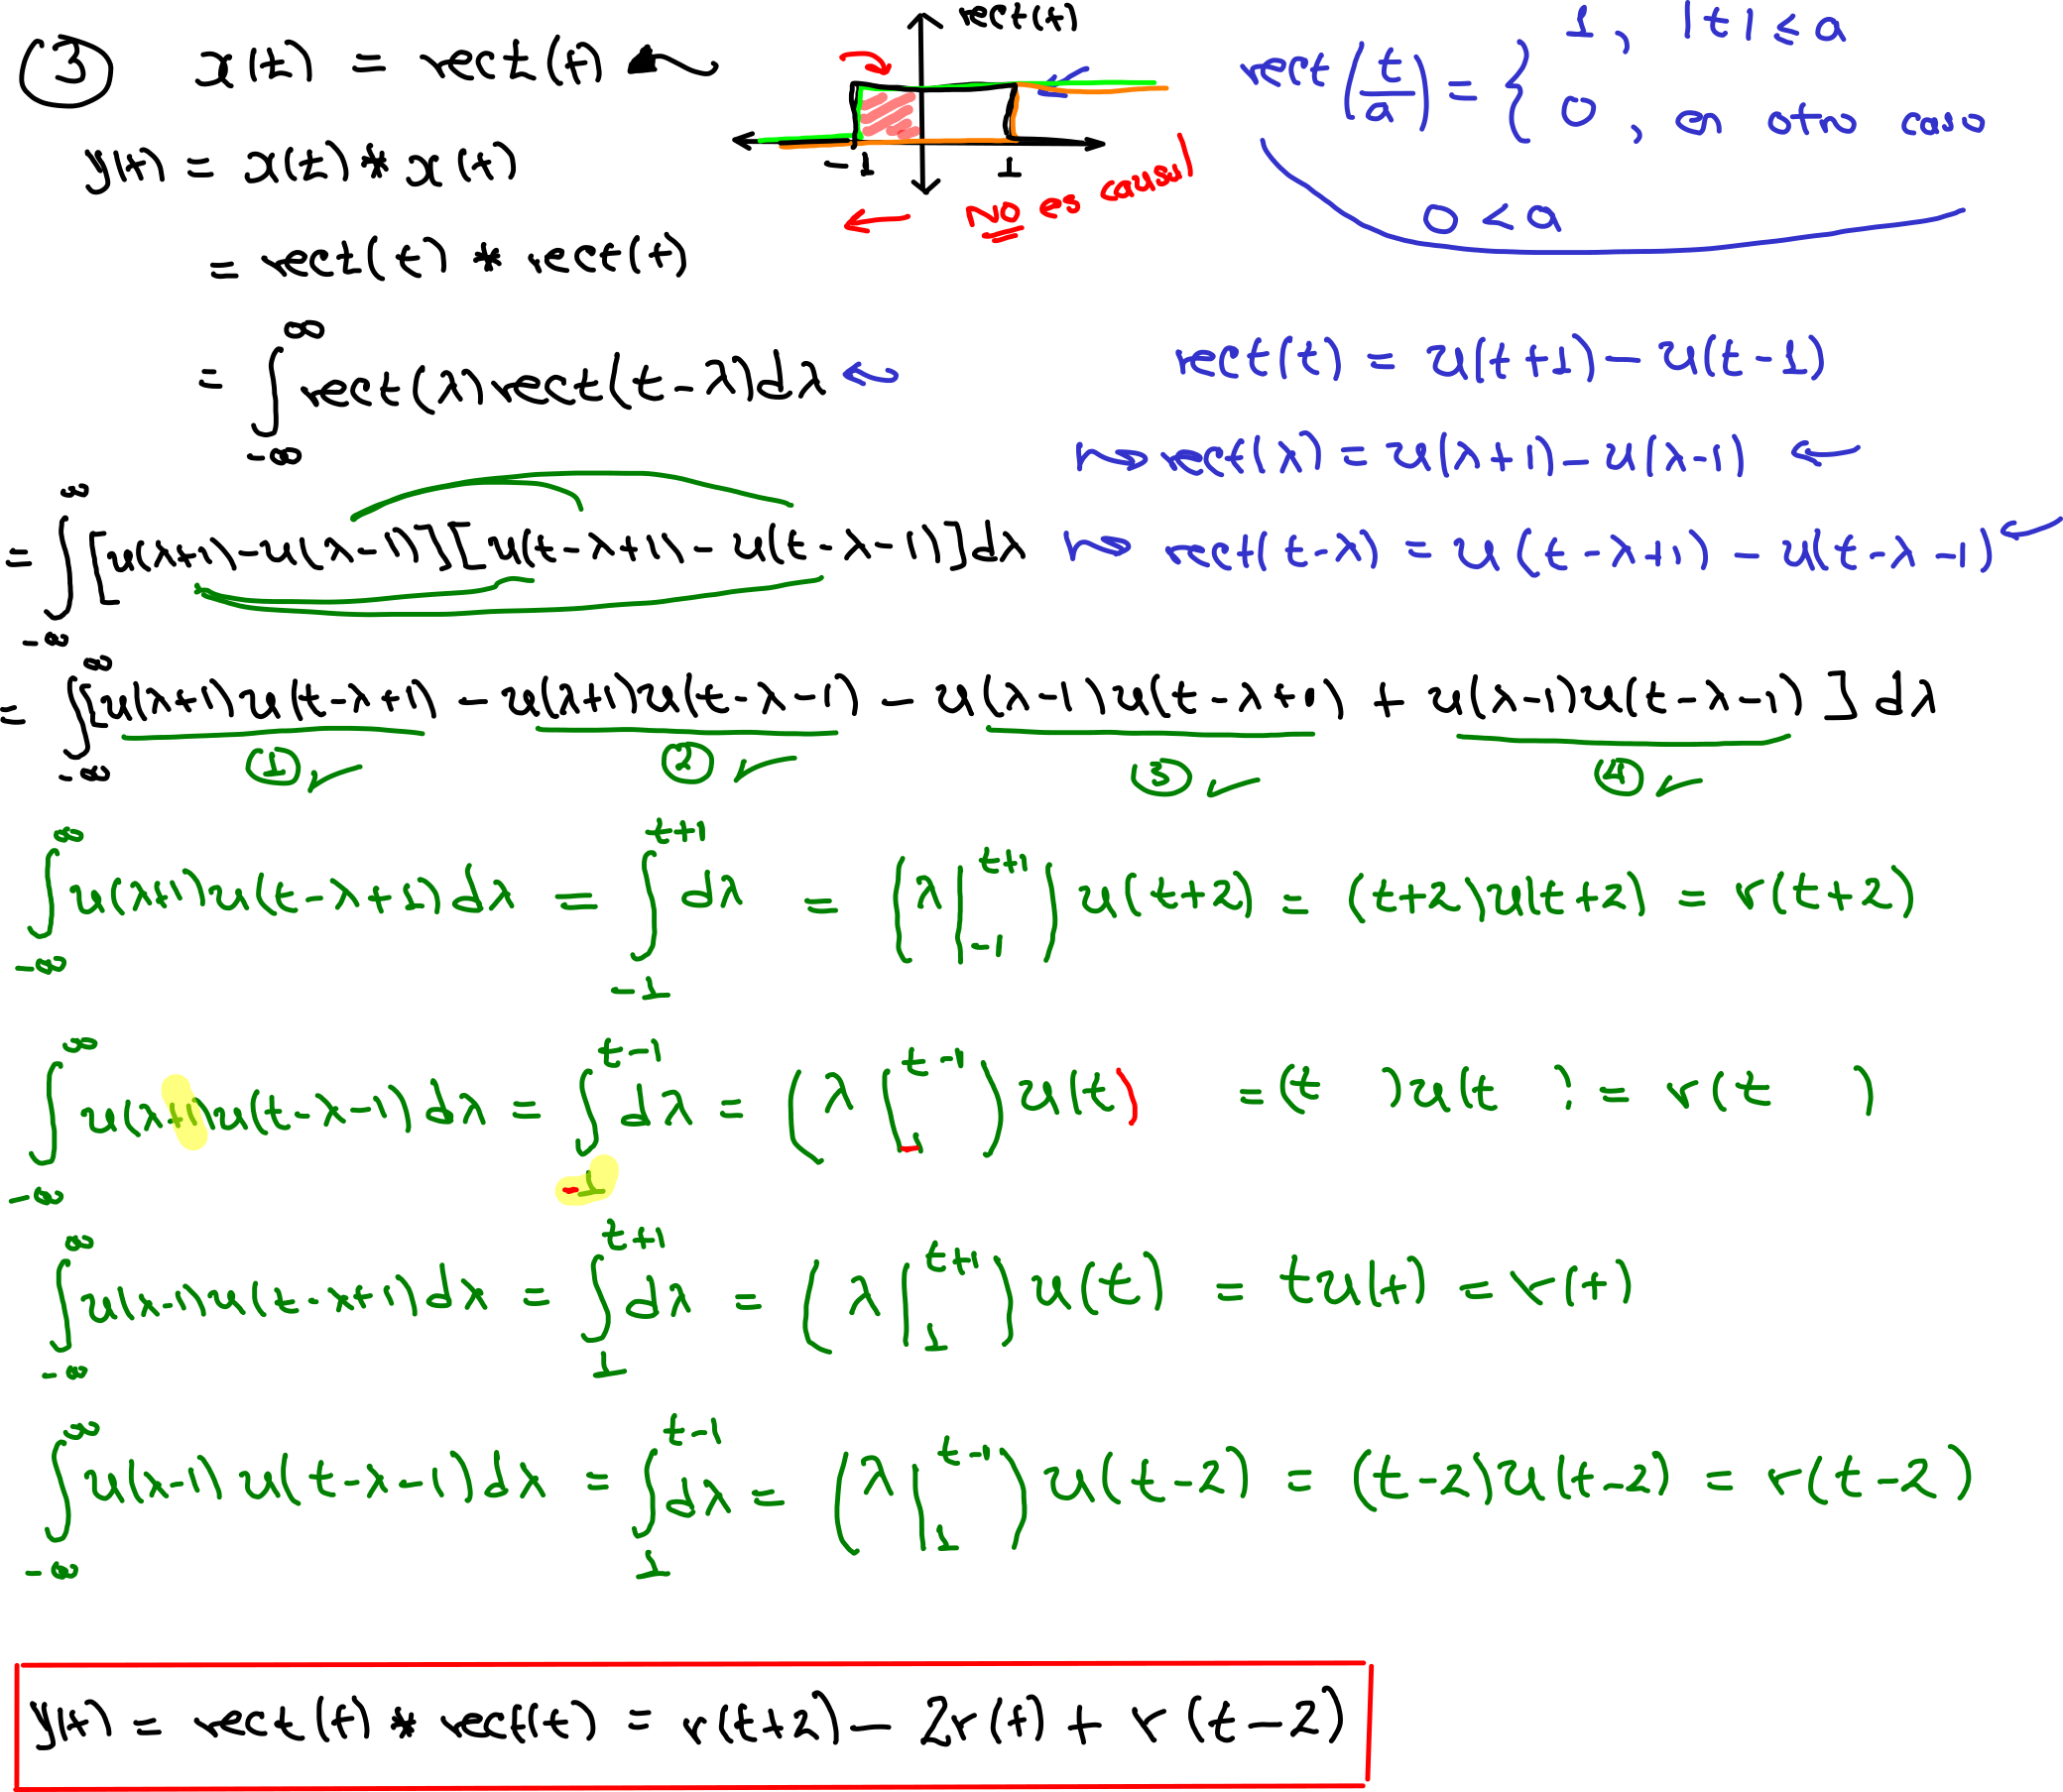 ③ x(t) = rect(t)
rect(t)
-1 1
NO es causal
rect(t/a) = { 1, |t| ≤ a
0, en otro caso
0 < a
y(t) = x(t) * x(t)
= rect(t) * rect(t)
= ∫_{-∞}^{∞} rect(λ) rect(t-λ) dλ
rect(t) = u(t+1) - u(t-1)
rect(λ) = u(λ+1) - u(λ-1)
= ∫_{-∞}^{∞} [u(λ+1) - u(λ-1)][u(t-λ+1) - u(t-λ-1)] dλ
rect(t-λ) = u(t-λ+1) - u(t-λ-1)
= ∫_{-∞}^{∞} [u(λ+1)u(t-λ+1) - u(λ+1)u(t-λ-1) - u(λ-1)u(t-λ+1) + u(λ-1)u(t-λ-1)] dλ
① ② ③ ④
∫_{-∞}^{∞} u(λ+1)u(t-λ+1) dλ = ∫_{-1}^{t+1} dλ = (λ |_{-1}^{t+1}) u(t+2) = (t+2)u(t+2) = r(t+2)
∫_{-∞}^{∞} u(λ+1)u(t-λ-1) dλ = ∫_{-1}^{t-1} dλ = (λ |_{1}^{t-1}) u(t) = (t )u(t ) = r(t )
∫_{-∞}^{∞} u(λ-1)u(t-λ+1) dλ = ∫_{1}^{t+1} dλ = (λ |_{1}^{t+1}) u(t) = t u(t) = r(t)
∫_{-∞}^{∞} u(λ-1) u(t-λ-1) dλ = ∫_{1}^{t-1} dλ = (λ |_{1}^{t-1}) u(t-2) = (t-2)u(t-2) = r(t-2)
y(t) = rect(t) * rect(t) = r(t+2) - 2r(t) + r(t-2)